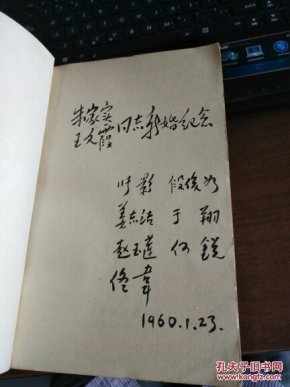 朱家实
王元霞 同志新婚纪念
叶影 段俊如
姜志洁 于翔
赵玉莲 何锐
佟韦
1960.1.23.
孔夫子旧书网